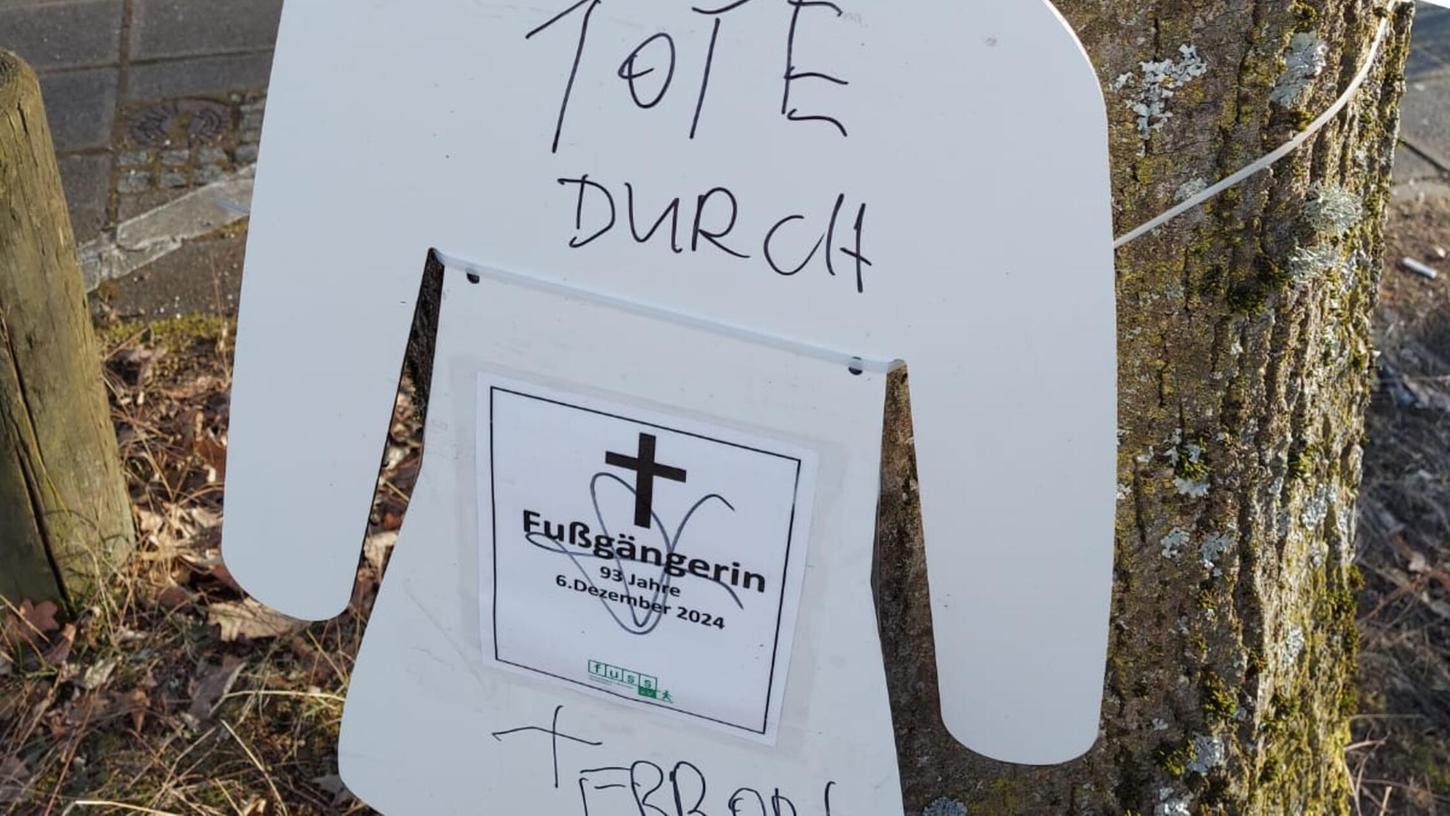 TOTE
DURCH
Fußgängerin
93 Jahre
6.Dezember 2024
fuss
e.V.